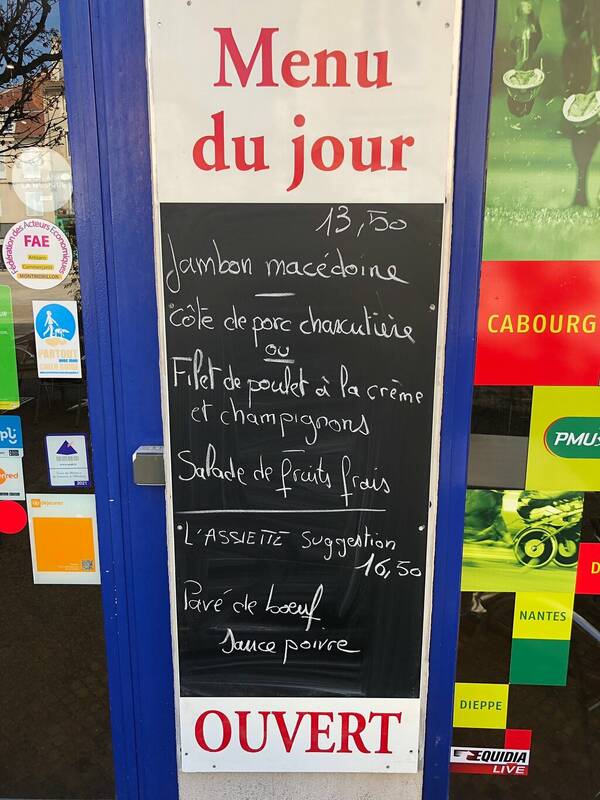 Menu
du jour
13,50
Jambon macédoine
Côte de porc charcutière
ou
Filet de poulet à la crème
et champignons
Salade de fruits frais
L'ASSIETTE Suggestion
16,50
Pavé de boeuf
Sauce poivre
OUVERT
Fédération des Acteurs Economiques
FAE
Artisans
Commerçants
MONTMORILLON
PARTOUT
avec mon
CHIEN GUIDE
2021
CABOURG
PMU
NANTES
DIEPPE
EQUIDIA
LIVE